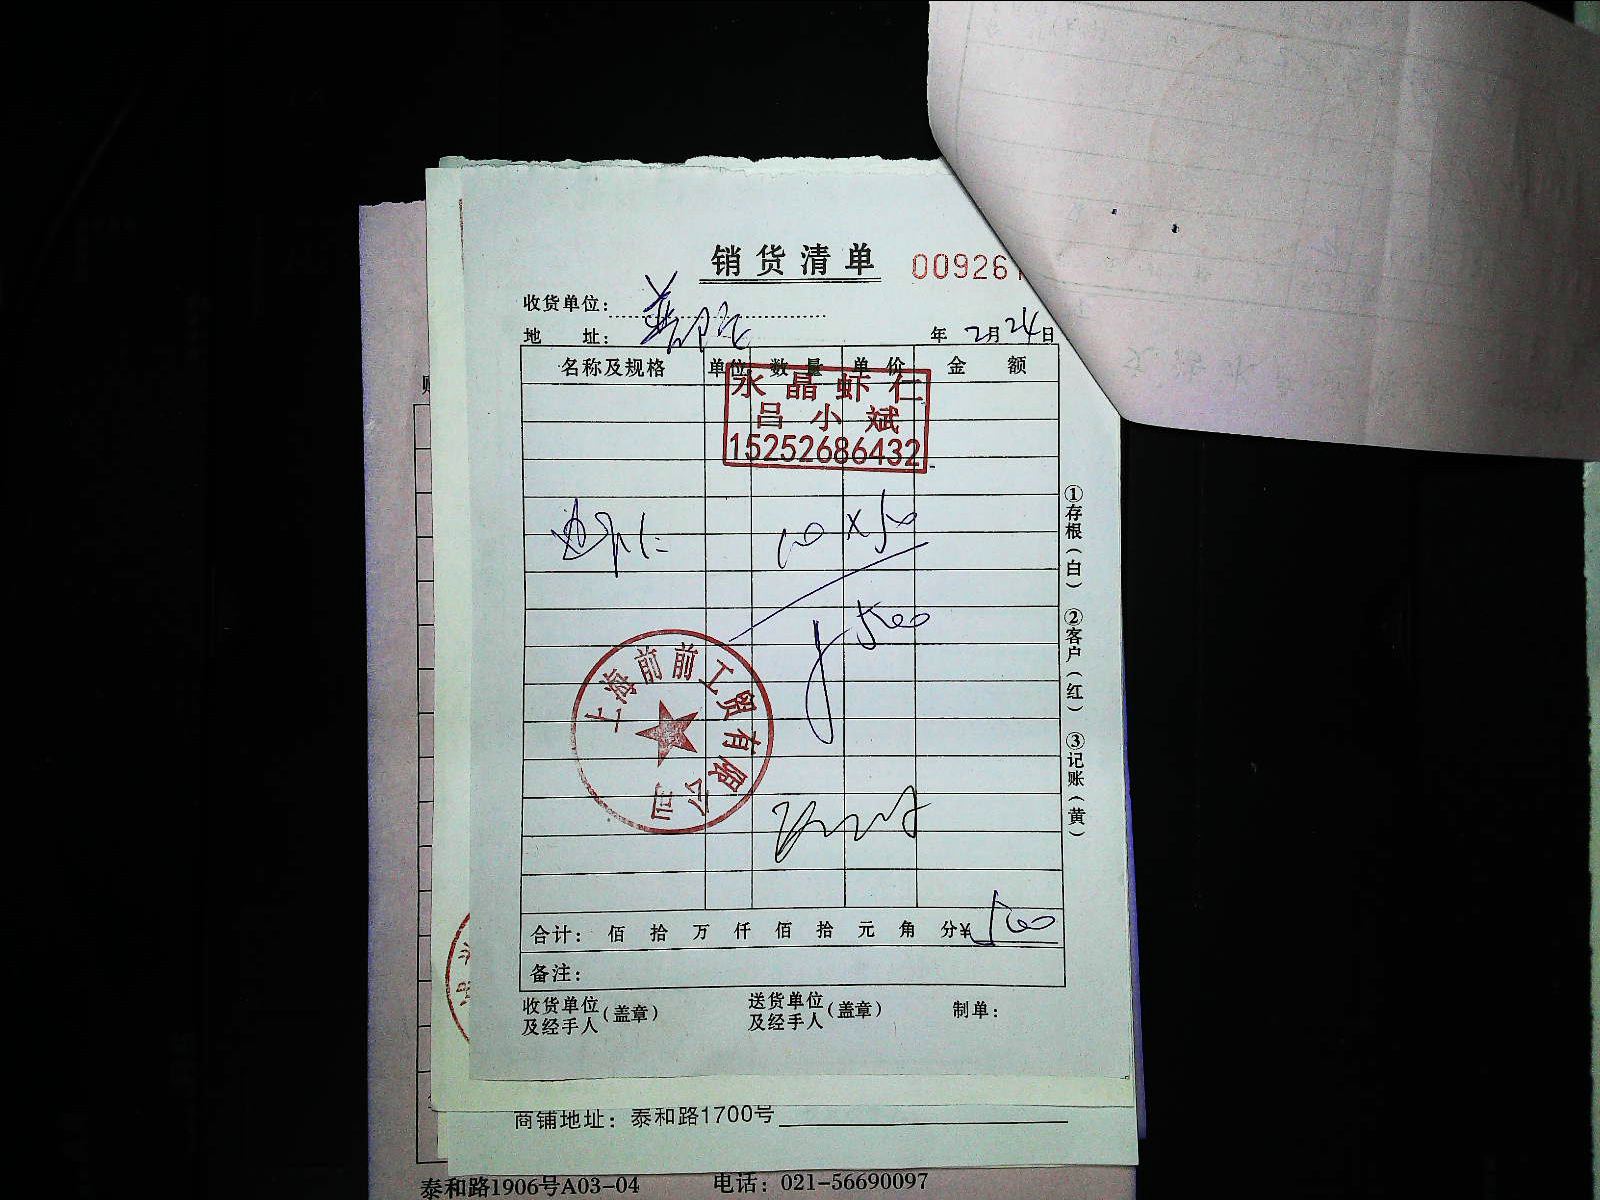 销货清单 009261
收货单位：
地 址：
年 2月24日
名称及规格 单位 数量 单价 金额
水晶虾仁
吕小斌
15252686432
10×50
500
上海前前工贸有限公司
合计： 佰 拾 万 仟 佰 拾 元 角 分￥500
备注：
收货单位及经手人（盖章） 送货单位及经手人（盖章） 制单：
①存根（白） ②客户（红） ③记账（黄）
商铺地址：泰和路1700号
泰和路1906号A03-04 电话：021-56690097